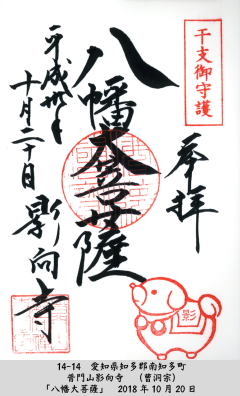 干支御守護
奉拝
八幡大菩薩
平成卅年
十月二十日
影向寺
影
14-14 愛知県知多郡南知多町
普門山影向寺 (曹洞宗)
「八幡大菩薩」 2018年10月20日